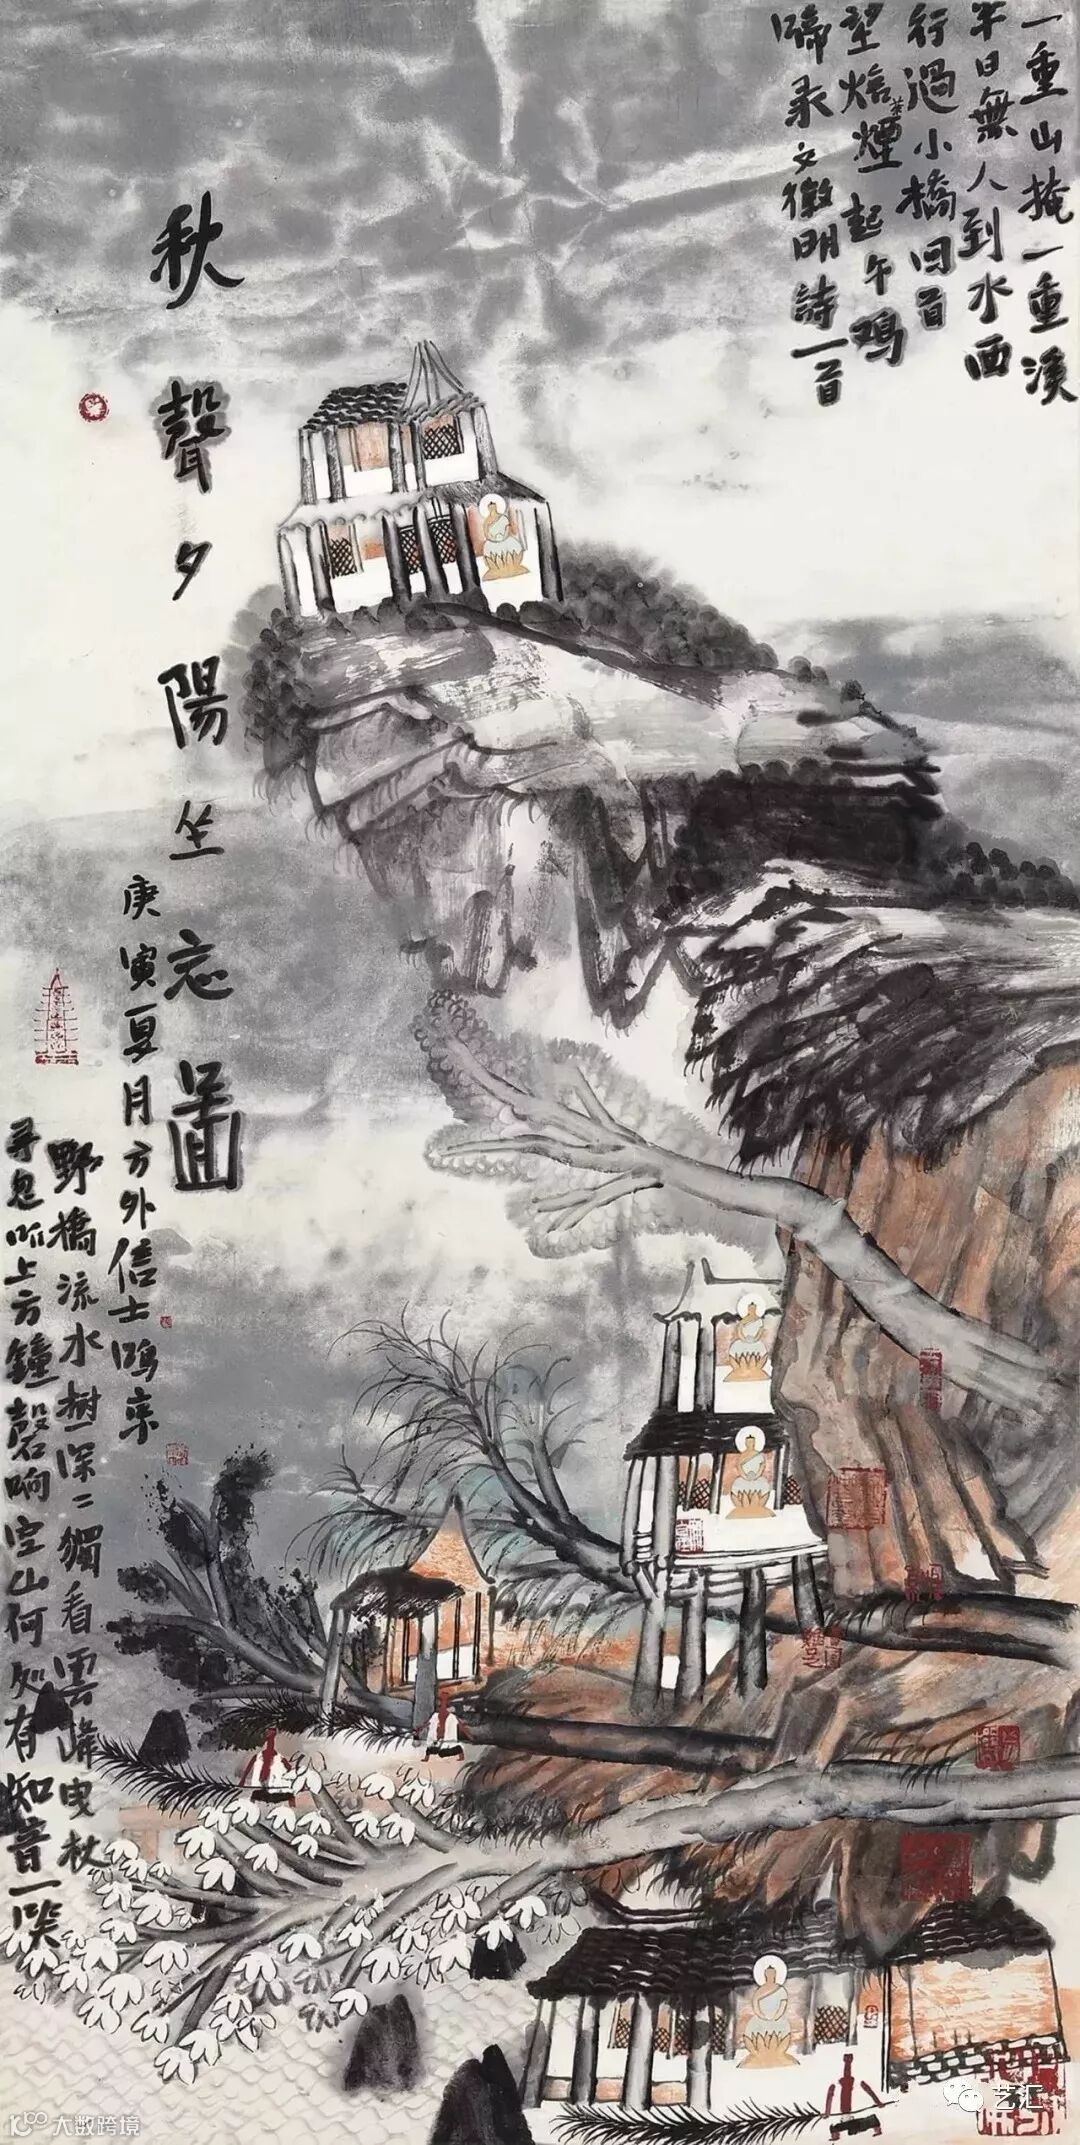 一重山掩一重溪
平日無人到水西
行過小橋回首
望焙茶煙起午鸡
啼录文徵明詩一首
秋聲夕陽坐忘圖
庚寅夏月方外信士鴻
野橋流水樹深二獨看雲峰曳杖
寻忽听上方鐘磬响空山何处有知音一笑
艺汇
大数跨境